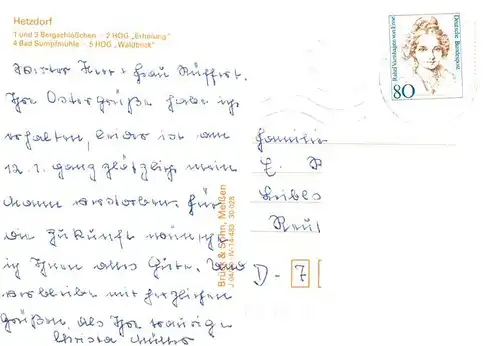 Hetzdorf
1 und 3 Bergschlößchen · 2 HOG „Erholung"
4 Bad Sumpfmühle · 5 HOG „Waldblick"
Werter Herr + Frau Rüffert.
Ihre Ostergrüße habe ich
erhalten, leider ist am
12. 1. ganz plötzlich mein
Mann verstorben. Für
die Zukunft wünsche
ich Ihnen alles Gute. Und
verbleibe mit herzlichen
Grüßen als Ihre traurige
Christa Müller
Brück & Sohn, Meißen
IV-14-483 30 028
Rahel Varnhagen von Ense
Deutsche Bundespost
80
Familie
E. R
Reut
D - 7